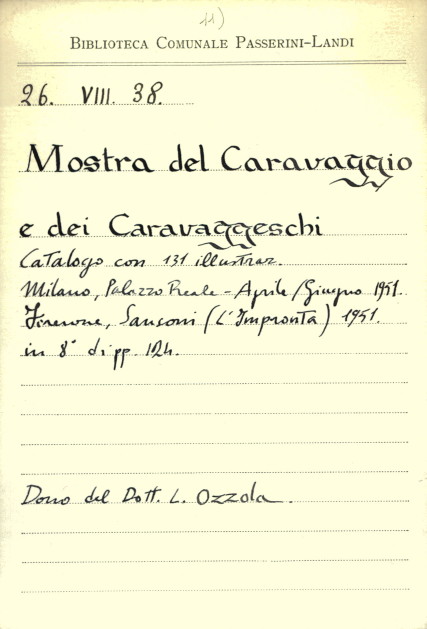 11)
BIBLIOTECA COMUNALE PASSERINI-LANDI
26. VIII. 38.
Mostra del Caravaggio
e dei Caravaggeschi
Catalogo con 131 illustraz.
Milano, Palazzo Reale - Aprile/Giugno 1951.
Firenze, Sansoni (L'Impronta) 1951.
in 8° di pp. 124.
Dono del Dott. L. Ozzola.